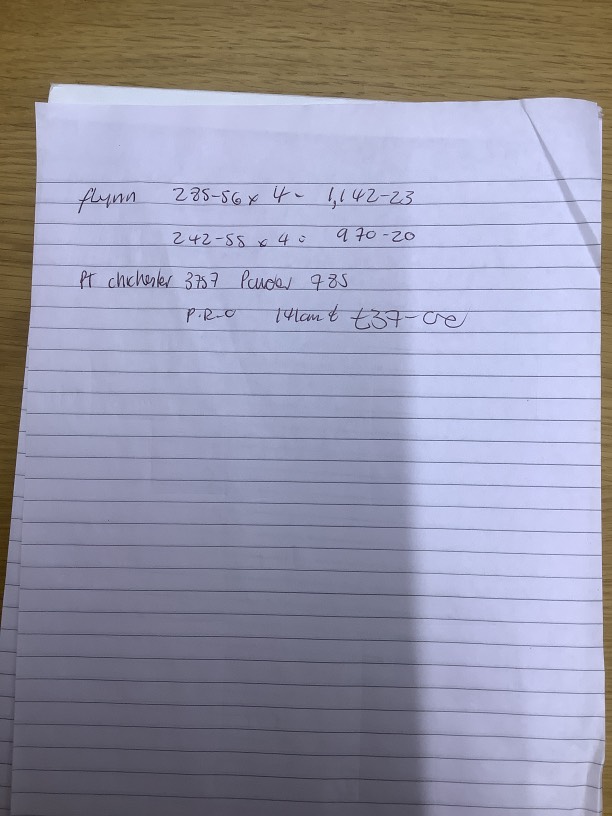 flynn 285-56 x 4 - 1,142-23
242-55 x 4 = 970-20
Pt chichester 3757 Powder 785
P.R-O 141cm £37-00